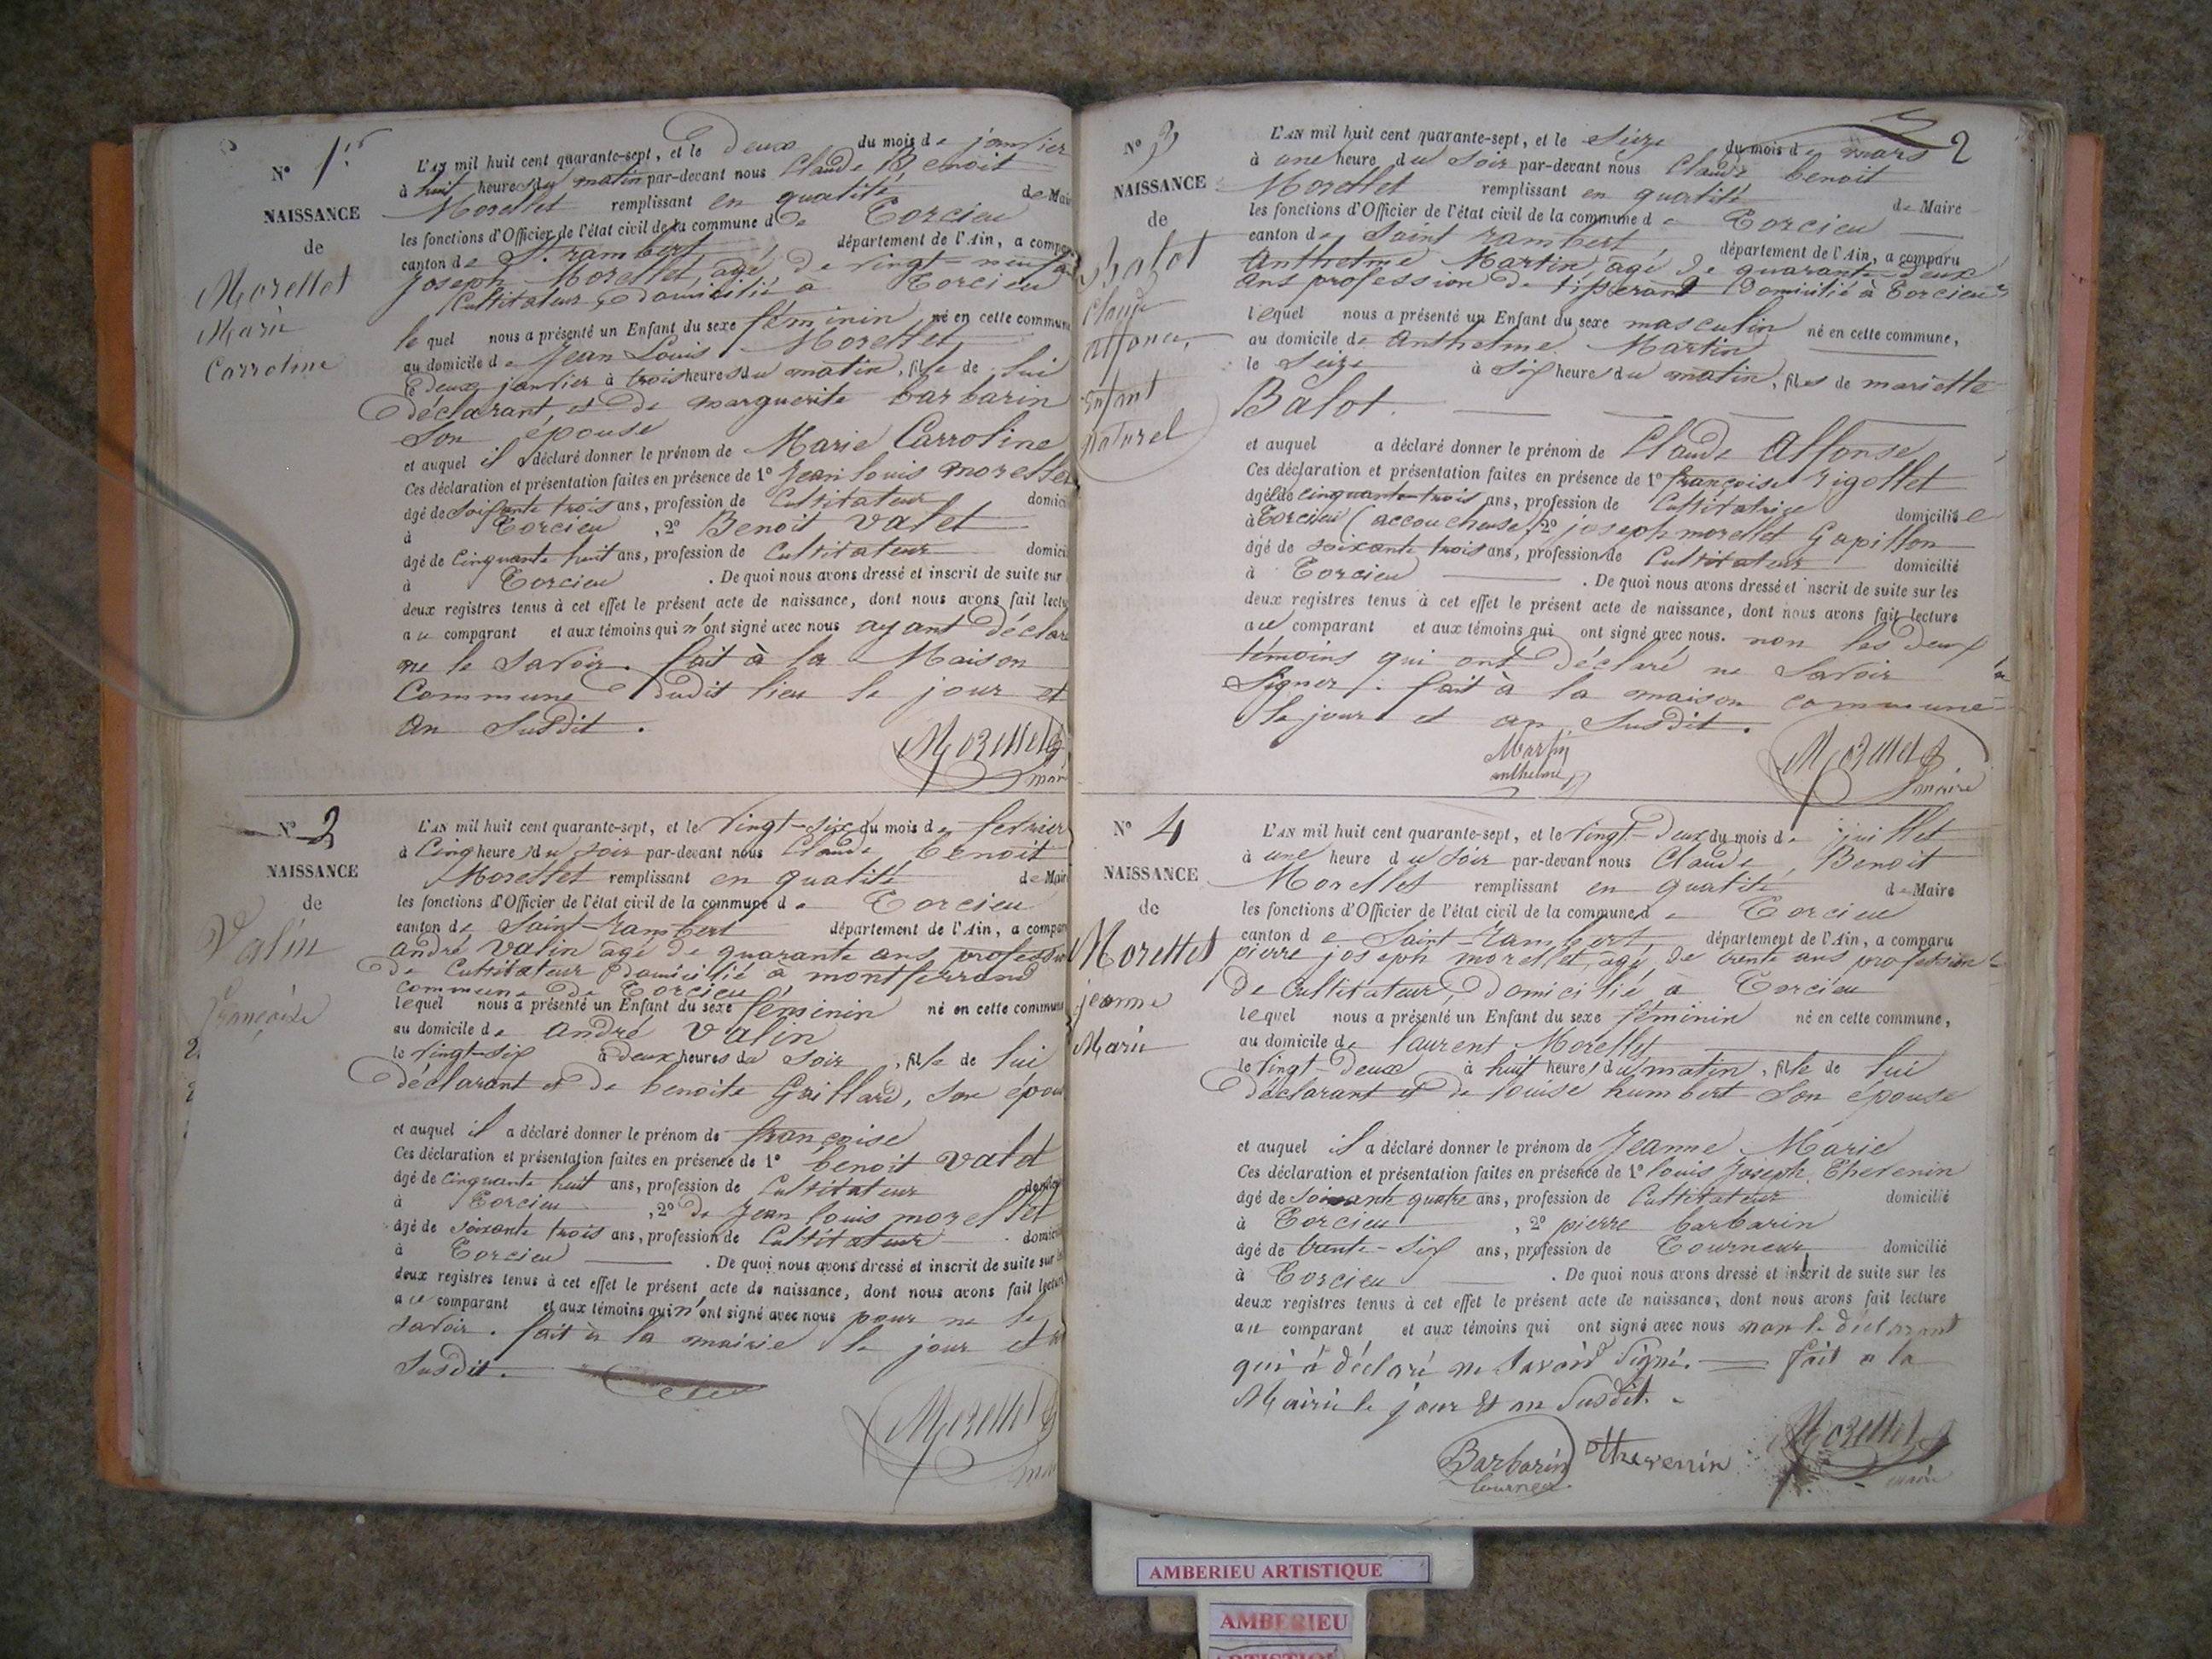 N° 1er
NAISSANCE
de
Morellet
Marie
Carroline
L'AN mil huit cent quarante-sept, et le deux du mois de janvier
à huit heures du matin par-devant nous Claude Benoit
Morellet remplissant en qualité de Mair
les fonctions d'Officier de l'état civil de la commune de Torcieu
canton de St. rambert département de l'Ain, a compar
joseph Morellet, agé de vingt-neuf an
Cultivateur, domicilié à Torcieu
lequel nous a présenté un Enfant du sexe féminin né en cette commun
au domicile de Jean Louis Morellet
le deux janvier à trois heures du matin, fille de lui
déclarant et de marguerite barbarin
son épouse
et auquel il a déclaré donner le prénom de Marie Carroline
Ces déclaration et présentation faites en présence de 1° Jean louis morellet
âgé de soixante trois ans, profession de Cultivateur domici
à Torcieu, 2° Benoit Valet
âgé de cinquante huit ans, profession de Cultivateur domici
à Torcieu. De quoi nous avons dressé et inscrit de suite sur
deux registres tenus à cet effet le présent acte de naissance, dont nous avons fait lectu
au comparant et aux témoins qui n'ont signé avec nous ayant déclaré
ne le savoir. fait à la Maison
Commune dudit lieu le jour et
an susdit.
Morellet
maire
N° 2
NAISSANCE
de
Valin
Françoise
L'AN mil huit cent quarante-sept, et le vingt-six du mois de fevrier
à cinq heures du soir par-devant nous Claude benoit
Morellet remplissant en qualité de Mair
les fonctions d'Officier de l'état civil de la commune de Torcieu
canton de Saint-rambert département de l'Ain, a compar
andré Valin agé de quarante ans, profession
de Cultivateur domicilié à montferrand
commune de Torcieu
lequel nous a présenté un Enfant du sexe féminin né en cette commune
au domicile de andré Valin
le vingt-six à deux heures du soir, fille de lui
déclarant et de benoite Gaillard, son épou
et auquel il a déclaré donner le prénom de françoise
Ces déclaration et présentation faites en présence de 1° benoit Valet
âgé de cinquante huit ans, profession de Cultivateur
à Torcieu, 2° de Jean louis morellet
âgé de soixante trois ans, profession de Cultivateur domici
à Torcieu. De quoi nous avons dressé et inscrit de suite sur
deux registres tenus à cet effet le présent acte de naissance, dont nous avons fait lecture
au comparant et aux témoins qui n'ont signé avec nous pour ne le
savoir. fait à la mairie le jour et an
susdit.
Morellet
N° 3
2
NAISSANCE
de
Balot
Claude
alfonce,
Enfant
naturel
L'AN mil huit cent quarante-sept, et le seize du mois de mars
à une heure du soir par-devant nous Claude benoit
Morellet remplissant en qualité de Maire
les fonctions d'Officier de l'état civil de la commune de Torcieu
canton de Saint rambert département de l'Ain, a comparu
Anthelme Martin, agé de quarante-deux
ans profession de tisserant domicilié à Torcieu
lequel nous a présenté un Enfant du sexe masculin né en cette commune,
au domicile de Anthelme Martin
le seize à six heures du matin, fils de mariette
Balot.
et auquel a déclaré donner le prénom de Claude Alfonse
Ces déclaration et présentation faites en présence de 1° françoise rigollet
âgé de cinquante-trois ans, profession de Cultivatrice domiciliée
à Torcieu (accoucheuse), 2° joseph morellet Gapillon
âgé de soixante trois ans, profession de Cultivateur domicilié
à Torcieu. De quoi nous avons dressé et inscrit de suite sur les
deux registres tenus à cet effet le présent acte de naissance, dont nous avons fait lecture
au comparant et aux témoins qui ont signé avec nous. non les deux
témoins qui ont déclaré ne savoir
signer. fait à la maison commune
le jour et an susdit.
Martin
anthelme
Morellet
maire
N° 4
NAISSANCE
de
Morellet
jeanne
Marie
L'AN mil huit cent quarante-sept, et le vingt-deux du mois de juillet
à une heure du soir par-devant nous Claude Benoit
Morellet remplissant en qualité de Maire
les fonctions d'Officier de l'état civil de la commune de Torcieu
canton de Saint-rambert département de l'Ain, a comparu
pierre joseph morellet, agé de trente ans profession
de Cultivateur, domicilié à Torcieu
lequel nous a présenté un Enfant du sexe féminin né en cette commune,
au domicile de laurent Morellet
le vingt-deux à huit heures du matin, fille de lui
déclarant et de louise humbert son épouse
et auquel il a déclaré donner le prénom de Jeanne Marie
Ces déclaration et présentation faites en présence de 1° louis joseph Thevenin
âgé de soixante quatre ans, profession de Cultivateur domicilié
à Torcieu, 2° pierre barbarin
âgé de trente-six ans, profession de Tourneur domicilié
à Torcieu. De quoi nous avons dressé et inscrit de suite sur les
deux registres tenus à cet effet le présent acte de naissance, dont nous avons fait lecture
au comparant et aux témoins qui ont signé avec nous non le déclarant
qui à déclaré ne savoir signé. fait a la
Mairie le jour et an susdit.
Barbarin
tourneur
thevenin
Morellet
maire
AMBERIEU ARTISTIQUE
AMBERIEU
ARTISTIQUE